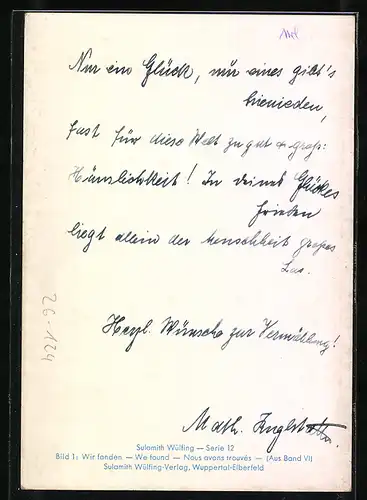 Nur ein Glück, nur eines gibt's
hienieden,
fast für diese Welt zu gut & groß:
Häuslichkeit! In deines Glückes
Frieden
liegt allein der Menschheit großes
Los.
26-124
Herzl. Wünsche zur Vermählung!
Math.
Sulamith Wülfing — Serie 12
Bild 1: Wir fanden — We found — Nous avons trouvés — (Aus Band VI)
Sulamith Wülfing-Verlag, Wuppertal-Elberfeld